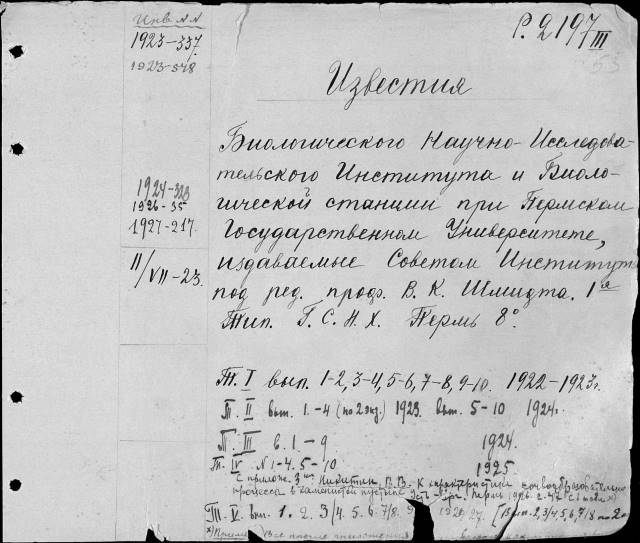 Инв. NN
1923-337.
1923-578
1924-323
1926-35
1927-217.
II/VII-23.
Р. 2197
III
53
Известия
Биологического Научно-Исследова-
тельского Института и Биоло-
гической станции при Пермском
Государственном Университете,
издаваемые Советом Института
под ред. проф. В. К. Шмидта. 1ая
Тип. Г. С. Н. Х. Пермь 8°.
Т. I вып. 1-2, 3-4, 5-6, 7-8, 9-10. 1922-1923г.
Т. II вып. 1.-4 (по 2 экз.) 1923. вып. 5-10 1924г.
Т. III в. 1-9 1924.
Т. IV N 1-4. 5-10 1925
С прилож. Никитин, В.В. К характеристике почвообразовательного
процесса в каменистой пустыне Пермь 1926.
Т. V. вып. 1. 2. 3/4. 5. 6. 7/8. 27. [Вып. 2, 3/4, 5, 6, 7/8 по 2